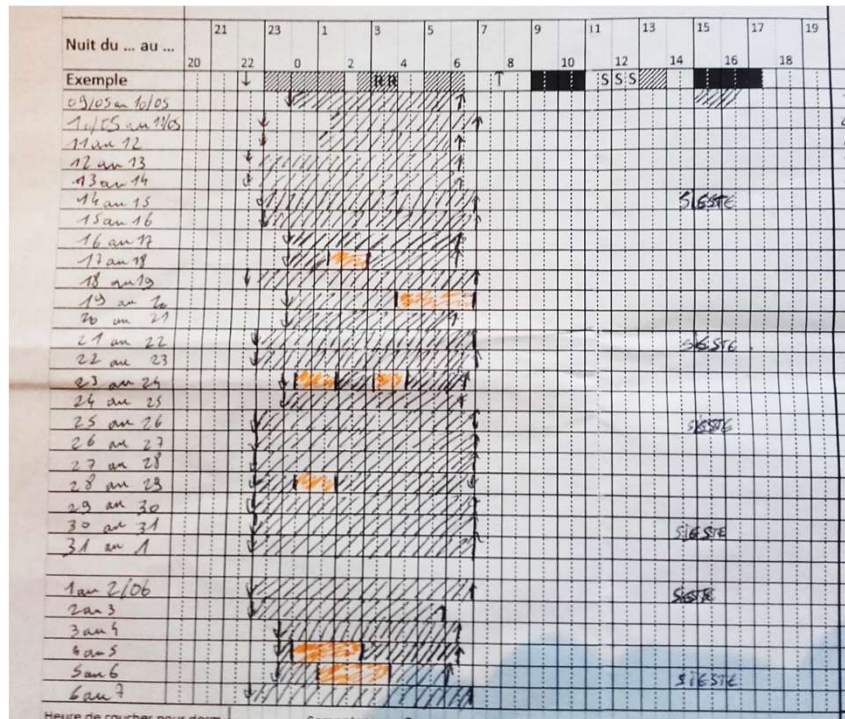 21 23 1 3 5 7 9 11 13 15 17 19
Nuit du ... au ...
20 22 0 2 4 6 8 10 12 14 16 18
Exemple ↓ R R ↑ S S S
09/05 au 10/05
10/05 au 11/05
11 au 12
12 au 13
13 au 14
14 au 15 SIESTE
15 au 16
16 au 17
17 au 18
18 au 19
19 au 20
20 au 21
21 au 22 SIESTE
22 au 23
23 au 24
24 au 25
25 au 26 SIESTE
26 au 27
27 au 28
28 au 29
29 au 30
30 au 31 SIESTE
31 au 1
1 au 2/06 SIESTE
2 au 3
3 au 4
4 au 5
5 au 6 SIESTE
6 au 7
Heure de coucher pour dorm